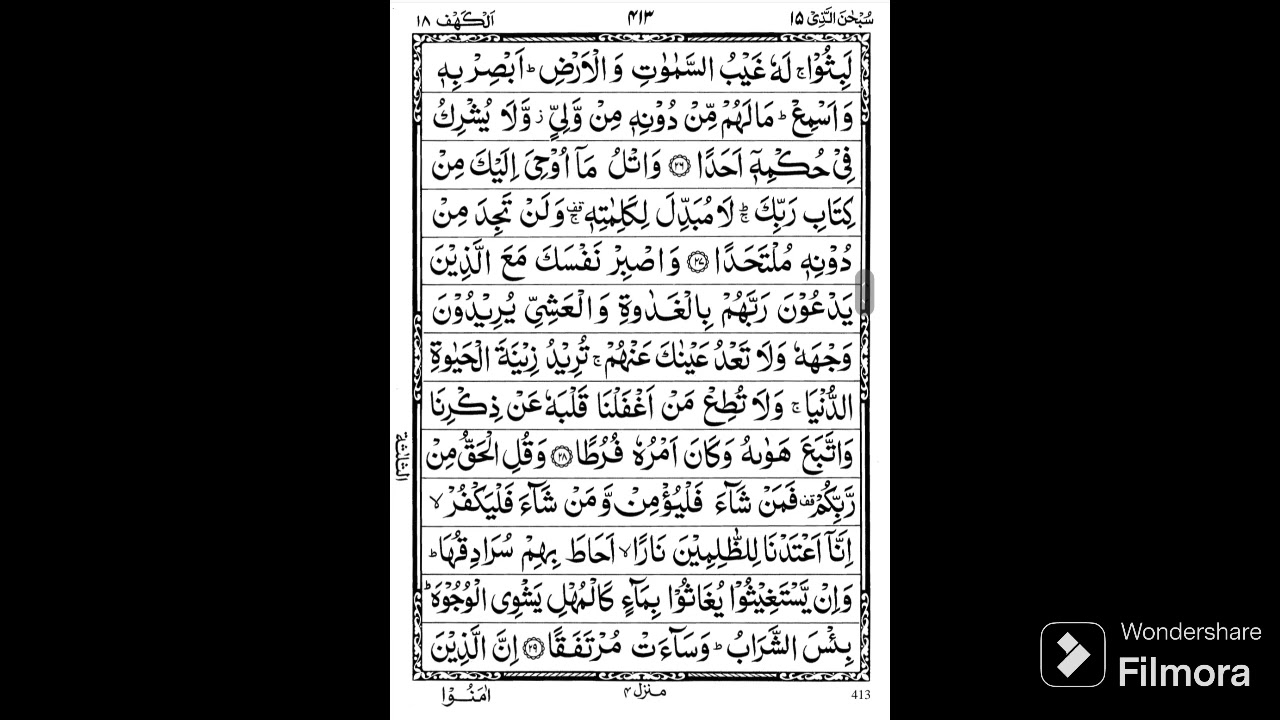 سُبْحٰنَ الَّذِیْۤ ۱۵
۴۱۳
اَلْكَهْف ۱۸
لَبِثُوْا ۚ لَهٗ غَیْبُ السَّمٰوٰتِ وَ الْاَرْضِ ؕ اَبْصِرْ بِهٖ
وَ اَسْمِعْ ؕ مَا لَهُمْ مِّنْ دُوْنِهٖ مِنْ وَّلِیٍّ ؗ وَّ لَا یُشْرِكُ
فِیْ حُكْمِهٖۤ اَحَدًا ۲۶ وَ اتْلُ مَاۤ اُوْحِیَ اِلَیْكَ مِنْ
كِتَابِ رَبِّكَ ؕۚ لَا مُبَدِّلَ لِكَلِمٰتِهٖ ۫ۚ وَ لَنْ تَجِدَ مِنْ
دُوْنِهٖ مُلْتَحَدًا ۲۷ وَ اصْبِرْ نَفْسَكَ مَعَ الَّذِیْنَ
یَدْعُوْنَ رَبَّهُمْ بِالْغَدٰوةِ وَ الْعَشِیِّ یُرِیْدُوْنَ
وَجْهَهٗ وَ لَا تَعْدُ عَیْنٰكَ عَنْهُمْ ۚ تُرِیْدُ زِیْنَةَ الْحَیٰوةِ
الدُّنْیَا ۚ وَ لَا تُطِعْ مَنْ اَغْفَلْنَا قَلْبَهٗ عَنْ ذِكْرِنَا
وَ اتَّبَعَ هَوٰىهُ وَ كَانَ اَمْرُهٗ فُرُطًا ۲۸ وَ قُلِ الْحَقُّ مِنْ
الثلاثة
رَّبِّكُمْ ۫ فَمَنْ شَآءَ فَلْیُؤْمِنْ وَّ مَنْ شَآءَ فَلْیَكْفُرْ ۙ
اِنَّاۤ اَعْتَدْنَا لِلظّٰلِمِیْنَ نَارًا ۙ اَحَاطَ بِهِمْ سُرَادِقُهَا ؕ
وَ اِنْ یَّسْتَغِیْثُوْا یُغَاثُوْا بِمَآءٍ كَالْمُهْلِ یَشْوِی الْوُجُوْهَ ؕ
بِئْسَ الشَّرَابُ ؕ وَ سَآءَتْ مُرْتَفَقًا ۲۹ اِنَّ الَّذِیْنَ
اٰمَنُوْا
منزل ۴
413
Wondershare
Filmora